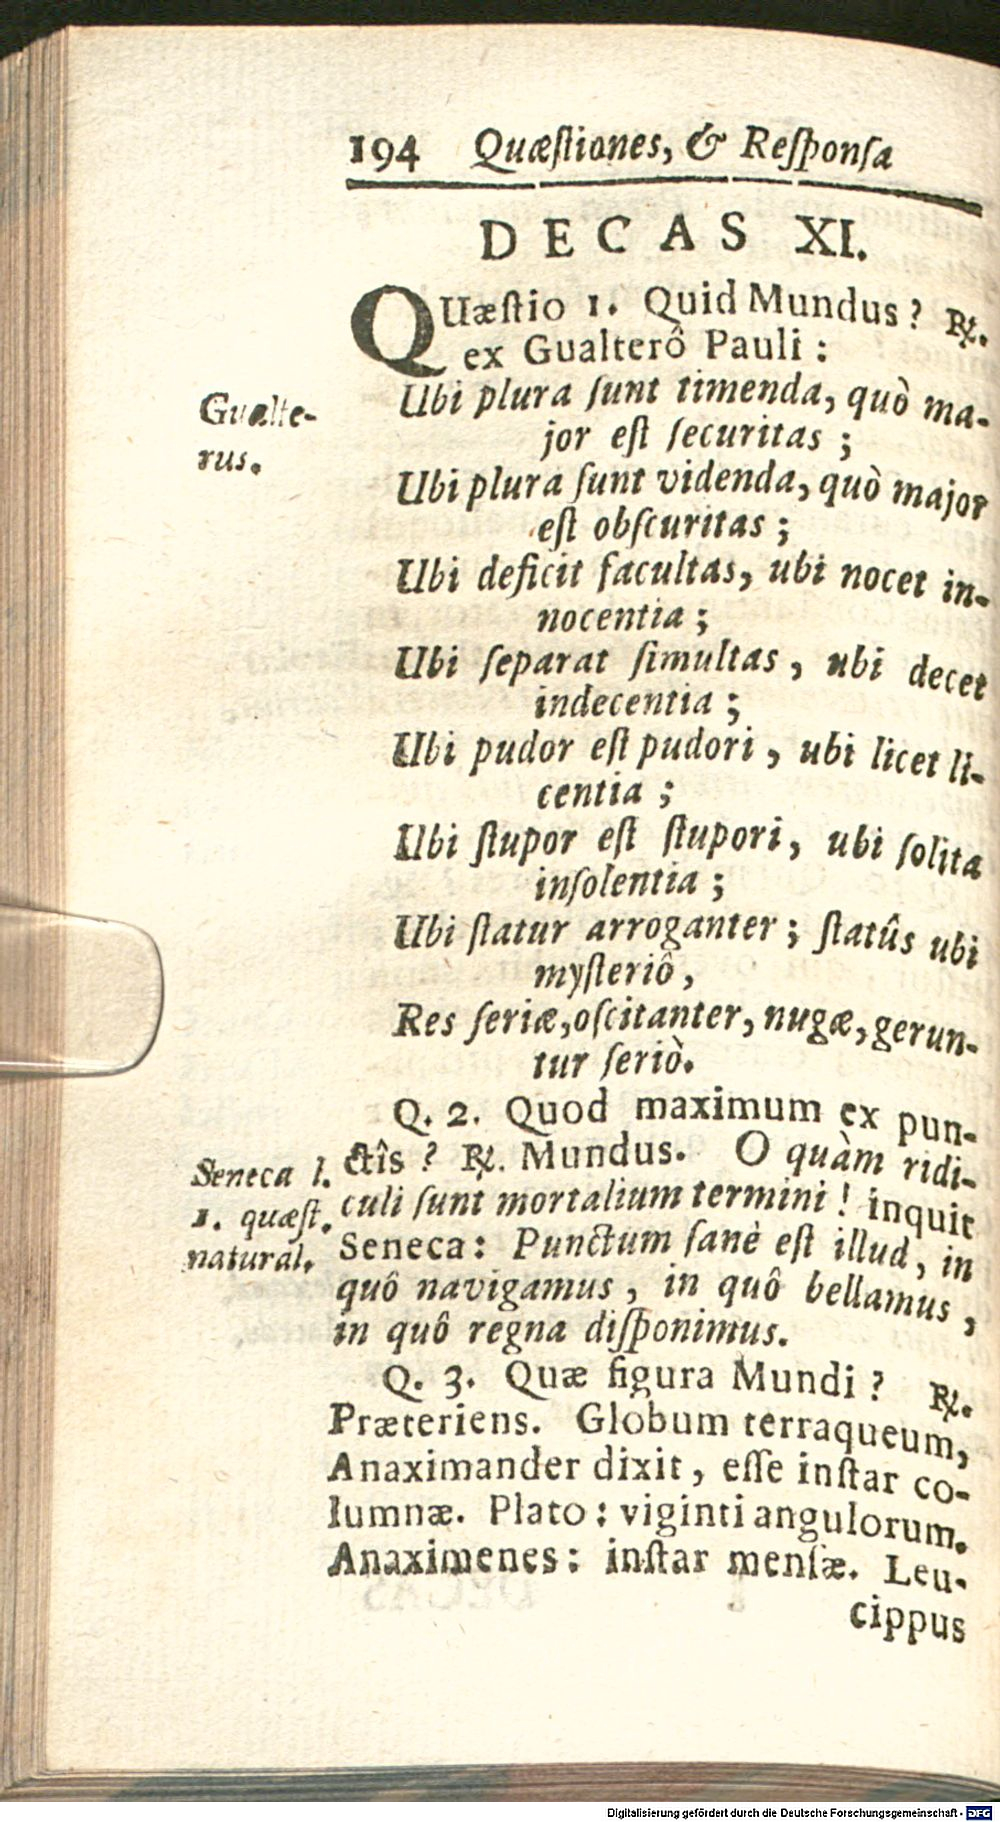 194 Quæſtiones, & Reſponſa
DECAS XI.
QUæſtio 1. Quid Mundus? ℟.
ex Gualterô Pauli:
Gualte-
rus.
Ubi plura ſunt timenda, quò ma-
jor eſt ſecuritas;
Ubi plura ſunt videnda, quò major
eſt obſcuritas;
Ubi deficit facultas, ubi nocet in-
nocentia;
Ubi ſeparat ſimultas, ubi decet
indecentia;
Ubi pudor eſt pudori, ubi licet li-
centia;
Ubi ſtupor eſt ſtupori, ubi ſolita
inſolentia;
Ubi ſtatur arroganter; ſtatûs ubi
myſteriô,
Res ſeriæ, oſcitanter, nugæ, gerun-
tur ſeriò.
Q. 2. Quod maximum ex pun-
ctîs? ℟. Mundus. O quàm ridi-
Seneca l.
1. quæſt.
natural.
culi ſunt mortalium termini! inquit
Seneca: Punctum ſanè eſt illud, in
quô navigamus, in quô bellamus,
in quô regna diſponimus.
Q. 3. Quæ figura Mundi? ℟.
Præteriens. Globum terraqueum,
Anaximander dixit, eſſe inſtar co-
lumnæ. Plato: viginti angulorum.
Anaximenes: inſtar menſæ. Leu-
cippus
Digitalisierung gefördert durch die Deutsche Forschungsgemeinschaft - DFG